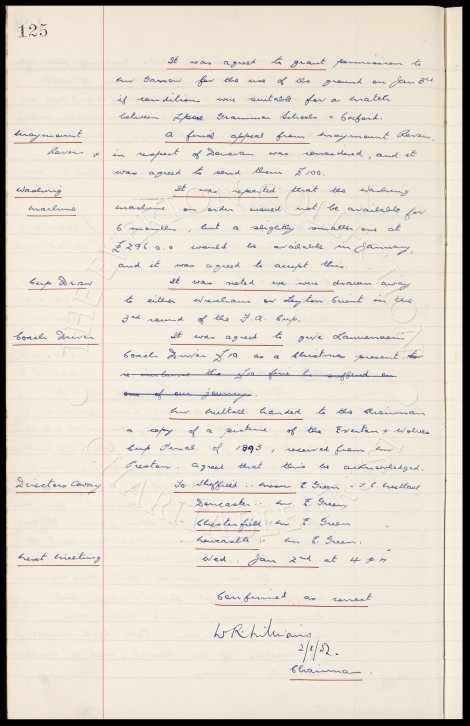 125
It was agreed to grant permission to
Mr Farrow for the use of the ground on Jan 3rd
if conditions were suitable for a match
between L'pool Grammar Schools v Oxford.
Maymount
Rover
A final appeal from Maymount Rovers,
in respect of Donovan was considered, and it
was agreed to send them £100.
Washing
Machine
It was reported that the washing
machine on order would not be available for
6 months, but a slightly smaller one at
£296.0.0 would be available in January,
and it was agreed to accept this.
Cup Draw
It was noted we were drawn away
to either Wrexham or Leyton Orient in the
3rd round of the F.A. Cup.
Coach Driver
It was agreed to give
Coach Driver £10 as a Christmas present to
re imburse the £10 fine he suffered on
one of our journeys.
Mr Nuttall handed to the Chairman
a copy of a picture of the Everton & Wolves
Cup Final of 1893, received from Mr
Preston. Agreed that this be acknowledged.
Directors away
To Sheffield :- Messrs E. Green & J. C. Nuttall
" Doncaster :- Mr E. Green
" Chesterfield :- Mr E. Green
" Newcastle :- Mr E. Green.
Next Meeting
Wed. Jan 2nd at 4 p.m
Confirmed as correct
W R Williams
2/1/52.
Chairman.